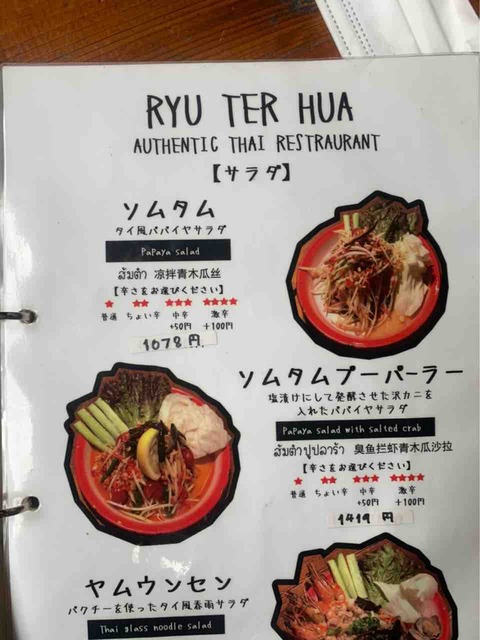 RYU TER HUA
AUTHENTIC THAI RESTRAURANT
【サラダ】
ソムタム
タイ風パパイヤサラダ
Papaya salad
ส้มตำ 凉拌青木瓜丝
【辛さをお選びください】
★ ★★ ★★★ ★★★★
普通 ちょい辛 中辛 激辛
+50円 +100円
1078 円
ソムタムプーパーラー
塩漬けにして発酵させた沢カニを
入れたパパイヤサラダ
Papaya salad with salted crab
ส้มตำปูปลาร้า 臭鱼拦虾青木瓜沙拉
【辛さをお選びください】
★ ★★ ★★★ ★★★★
普通 ちょい辛 中辛 激辛
+50円 +100円
1419 円
ヤムウンセン
パクチーを使ったタイ風春雨サラダ
Thai glass noodle salad